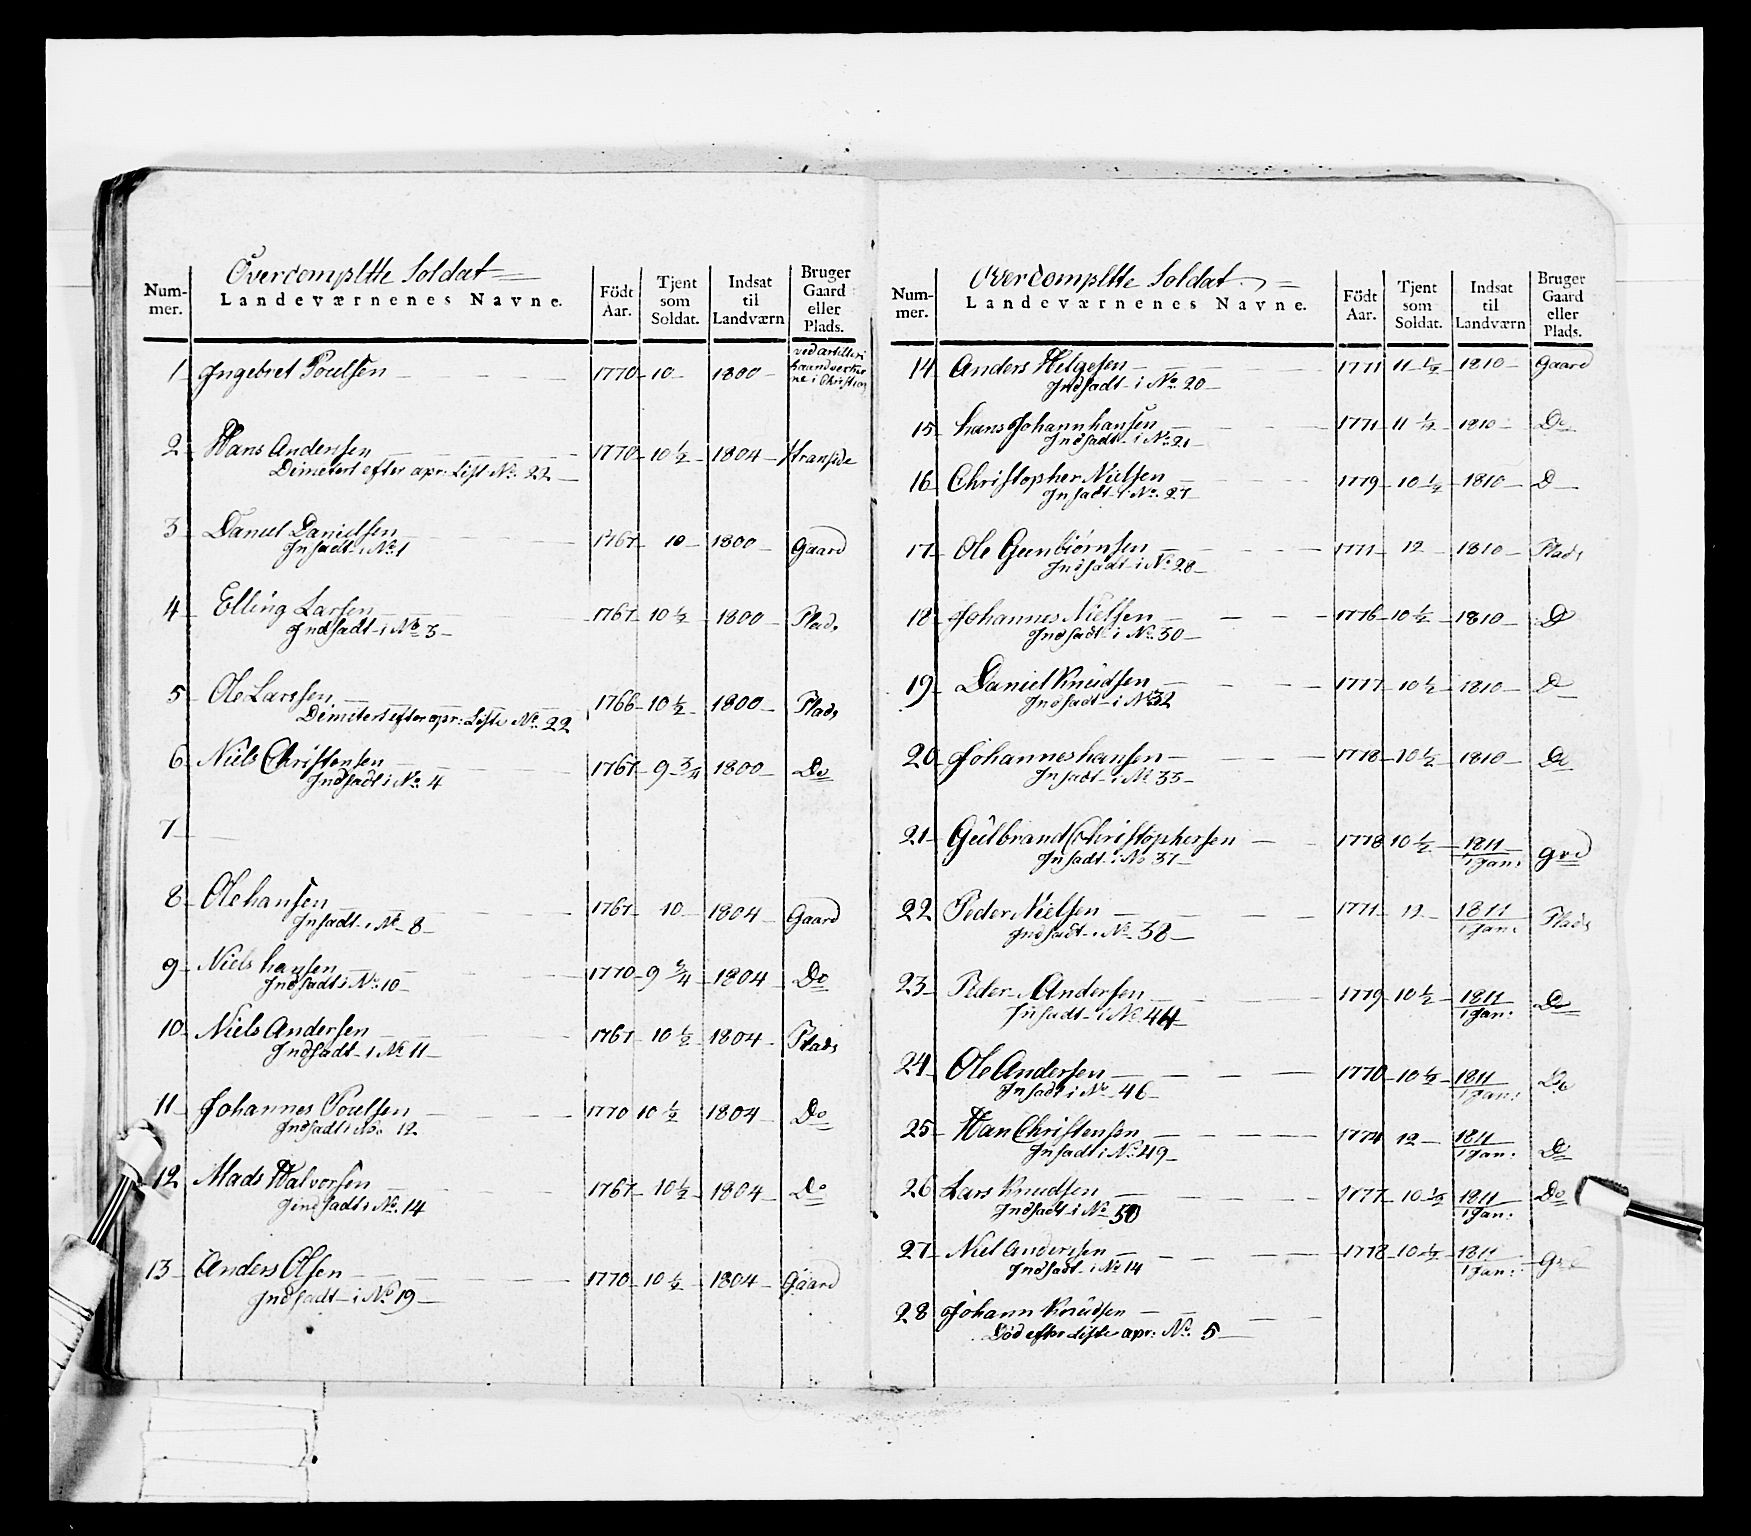 Overcompltte Soldat
Num- mer. Landeværnenes Navne. Födt Aar. Tjent som Soldat. Indsat til Landværn Bruger Gaard eller Plads.
1 Ingebret Poulsen 1770 10 1800 ved artilleri haandverker ne i Christian
2 Hans Andersen 1770 10 1/2 1804
Dimetert efter apr: List No. 22
3 Daniel Danielsen 1767 10 1800 Gaard
Insadt i No 1
4 Elling Larsen 1767 10 1/2 1800 Plads
Indsadt i No 3
5 Ole Larssen 1766 10 1/2 1800 Plads
Dimitert efter apr: Liste No. 22
6 Niels Christensen 1767 9 3/4 1800 Do
Indsadt i No 4
7
8 Ole hansen 1767 10 1804 Gaard
Insadt i No 8
9 Niels hansen 1770 9 3/4 1804 Do
Indsadt i No 10
10 Niels Andersen 1767 10 1/2 1804 Plads
Indsadt i No 11
11 Johannes Poulsen 1770 10 1/2 1804 Do
Indsadt i No. 12
12 Mads Halvorsen 1767 10 1/2 1804 Do
Indsadt i No. 14
13 Anders Olsen 1770 10 1/2 1804 Gaard
Indsadt i No 19
Overcompltte Soldat
Num- mer. Landeværnenes Navne. Födt Aar. Tjent som Soldat. Indsat til Landværn Bruger Gaard eller Plads.
14 Anders Helgesen 1771 11 1/2 1810 Gaard
Indsadt i No. 20
15 hans Johann hansen 1771 11 1/2 1810 Do
Indsadt i No 21
16 Christopher Nielsen 1779 10 1/2 1810 D
Insadt i No. 27
17 Ole Gunbiörnsen 1771 12 1810 Plads
Indsadt i No 28
18 Johannes Nielsen 1776 10 1/2 1810 D
Indsadt i No. 30
19 Daniel Knudsen 1777 10 1/2 1810 D
Indsadt i No 32
20 Johannes hansen 1778 10 1/2 1810 Do
Insadt i No 33
21 Gülbrand Christophersen 1778 10 1/2 1811 1 Jan: Grd
Insadt i No 37
22 Peder Nielsen 1771 12 1811 1 Jan: Plads
Indsadt i No 38
23 Peder Andersen 1779 10 1/2 1811 1 Jan: Do
Insadt i No 44
24 Ole Andersen 1770 10 1/2 1811 1 Jan: Do
Insadt i No 46
25 Han Christensen 1774 12 1811 1 Jan: Do
Insadt i No 49
26 Lars Knudsen 1777 10 1/2 1811 1 Jan: Do
Indsadt i No 50
27 Niel Anderssen 1778 10 1/2 1811 1 Jan: Grd
Indsadt i No 14
28 Johann Knüdsen
Död efter Liste apr: No. 5